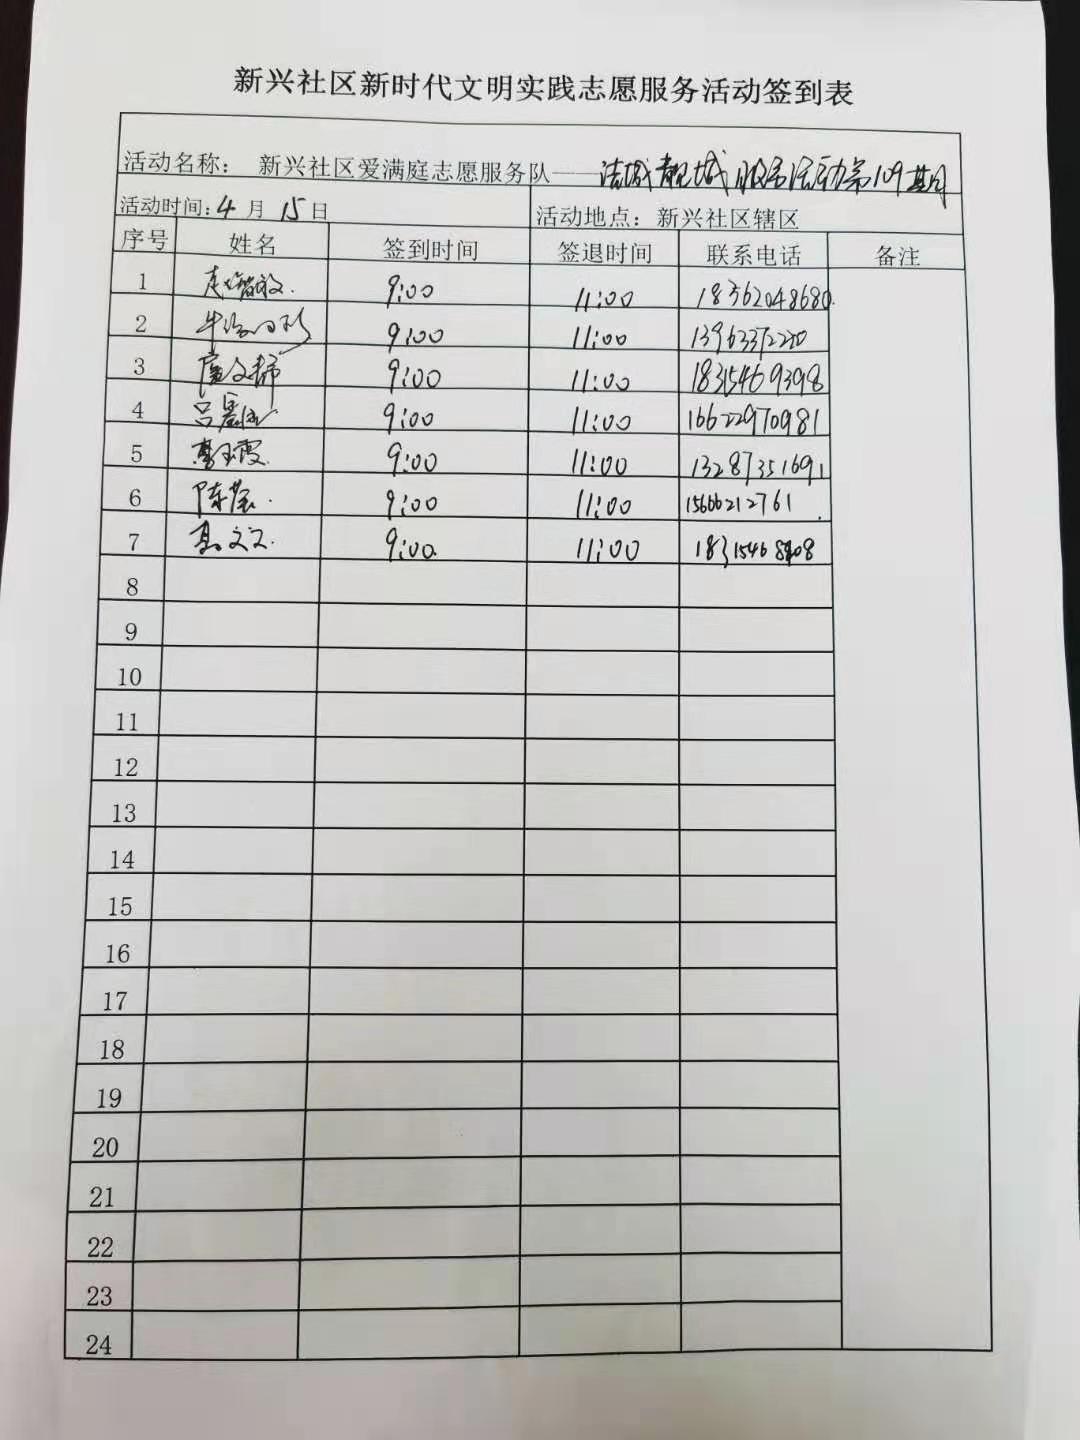 新兴社区新时代文明实践志愿服务活动签到表
活动名称： 新兴社区爱满庭志愿服务队——洁城靓城服务活动第109期
活动时间：4月15日 活动地点：新兴社区辖区
序号 姓名 签到时间 签退时间 联系电话 备注
1 9:00 11:00 18562048680
2 9:00 11:00 13963372220
3 9:00 11:00 18315469398
4 吕 9:00 11:00 16622970981
5 霞 9:00 11:00 13287351691
6 陈莹 9:00 11:00 15666212761
7 文文 9:00 11:00
8
9
10
11
12
13
14
15
16
17
18
19
20
21
22
23
24